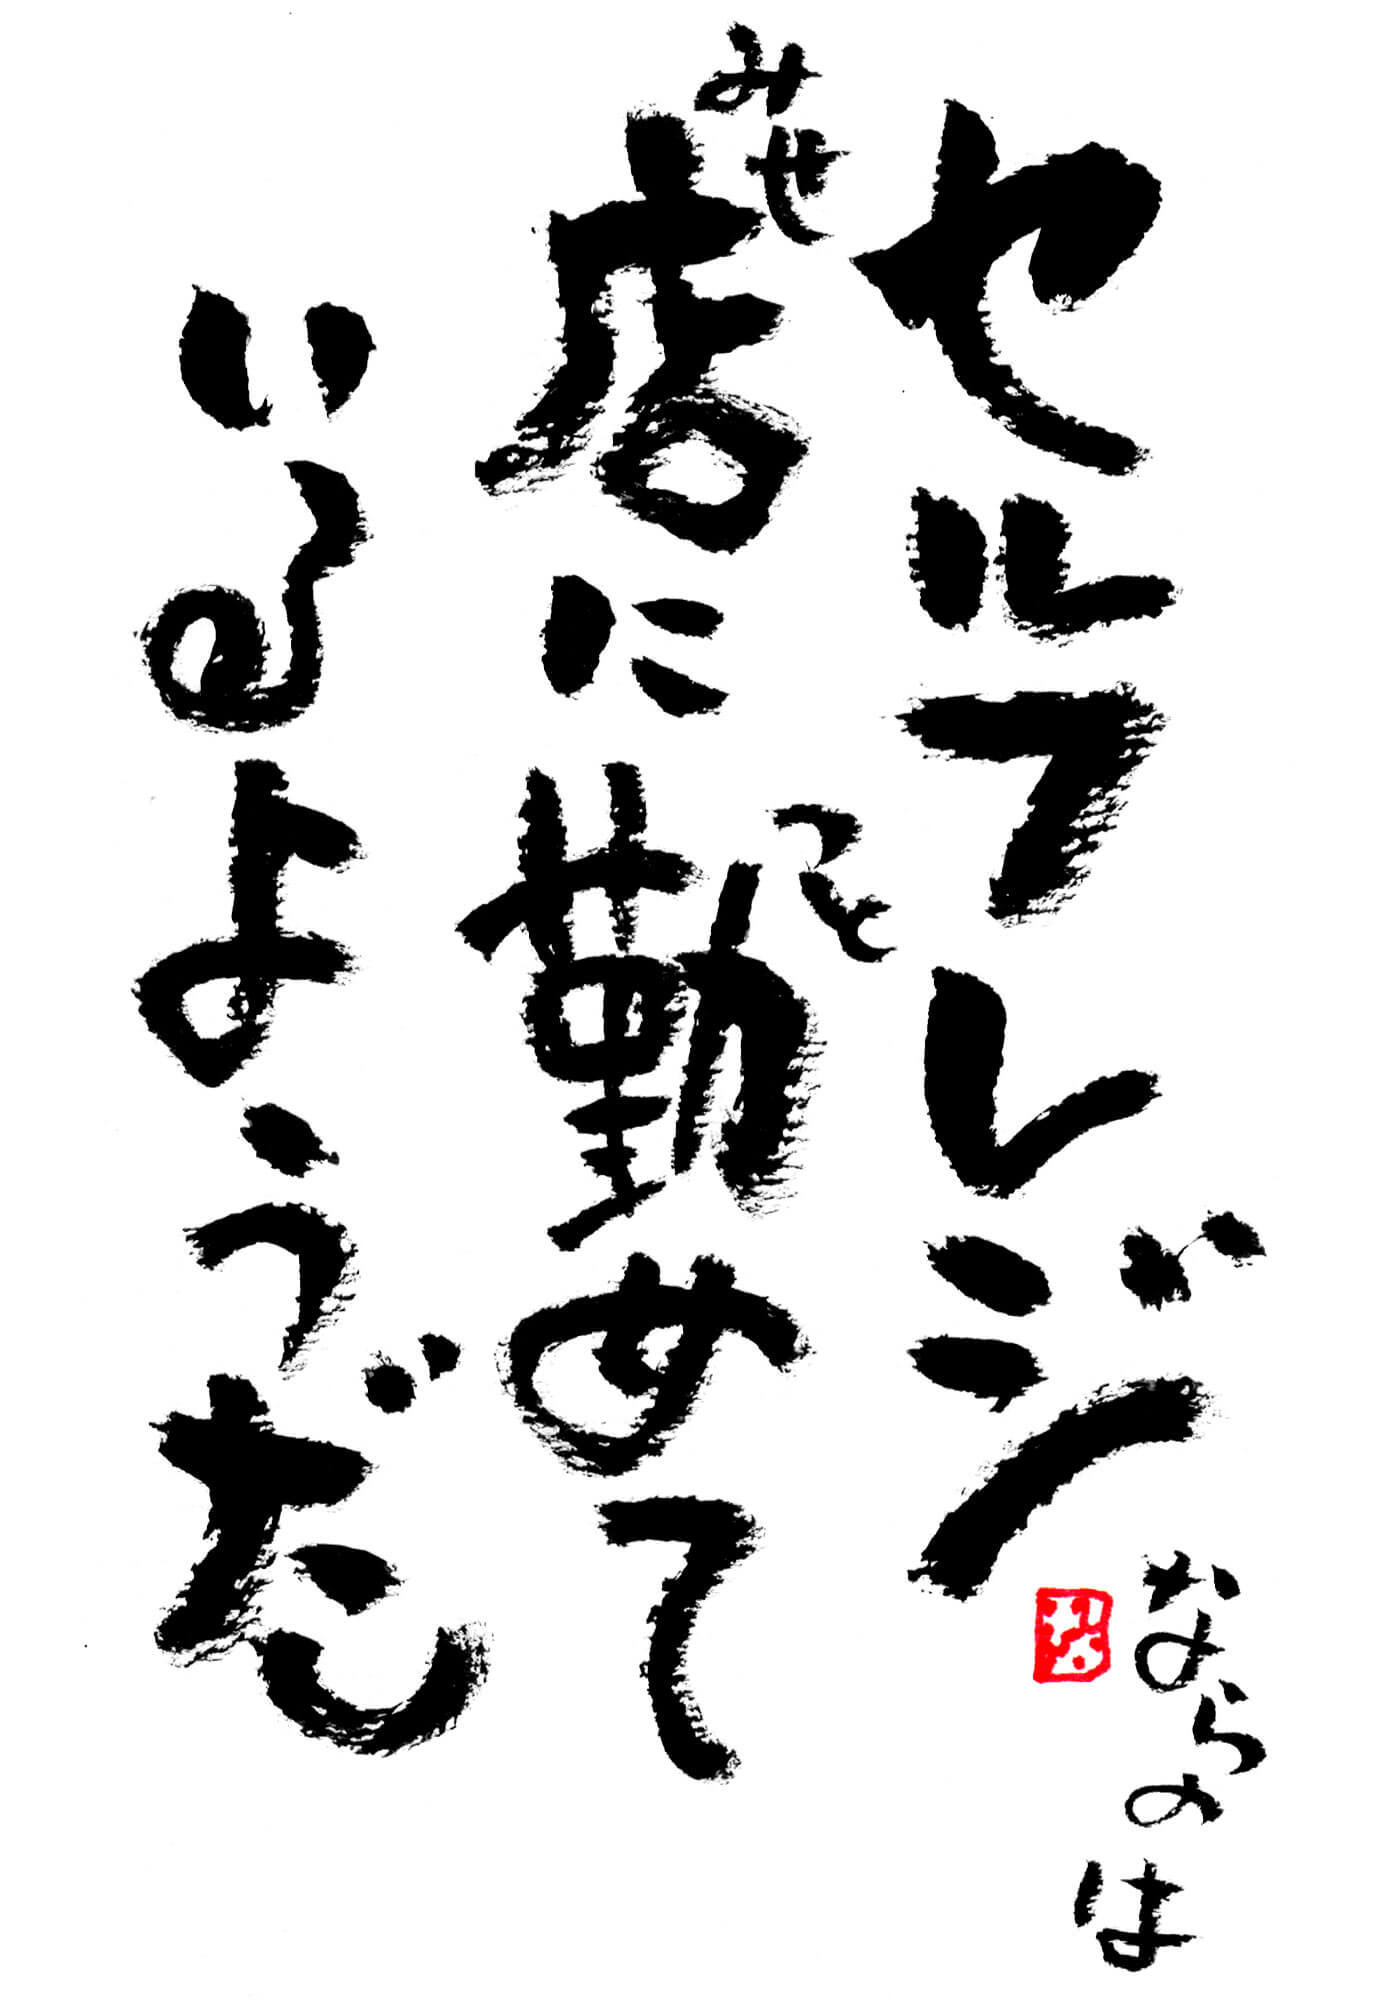 セルフレジ
店に勤めて
みせ
つと
いるようだ
ならのは